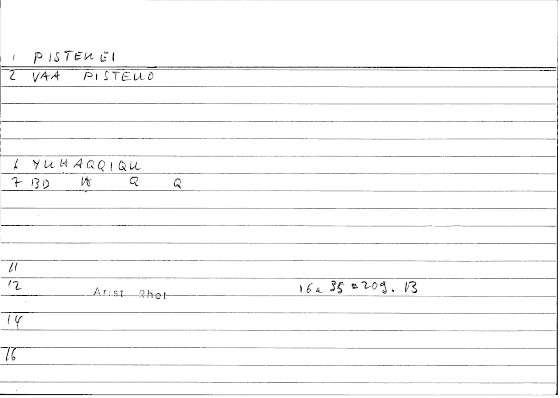 1 PISTEUEI
2 VAA PISTEUO
6 YUHAQQIQU
7 BD H Q Q
11
12 Arist Rhet 16a 35 = 209. 13
14
16